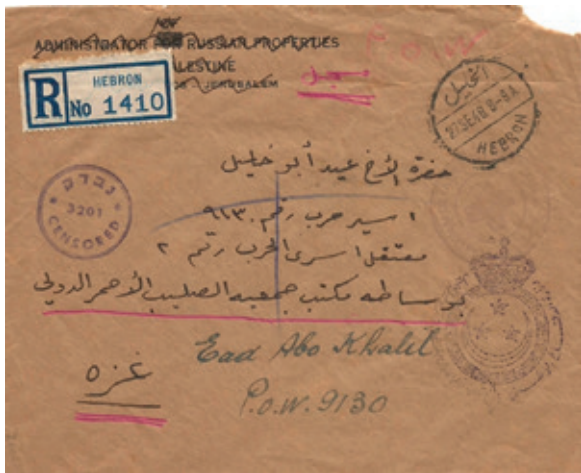 ADMINISTRATOR FOR RUSSIAN PROPERTIES
PALESTINE
JERUSALEM
R
HEBRON
No 1410
مسجل
الخليل
27 SE 48 8-9A
HEBRON
נבדק
3201
CENSORED
حضرة الأخ عيد أبو خليل
اسير حرب رقم ٩١٣٠
معتقل اسرى الحرب رقم ٢
بوساطه مكتب جمعيه الصليب الأحمر الدولي
غزه
Ead Abo Khalil
P.O.W. 9130